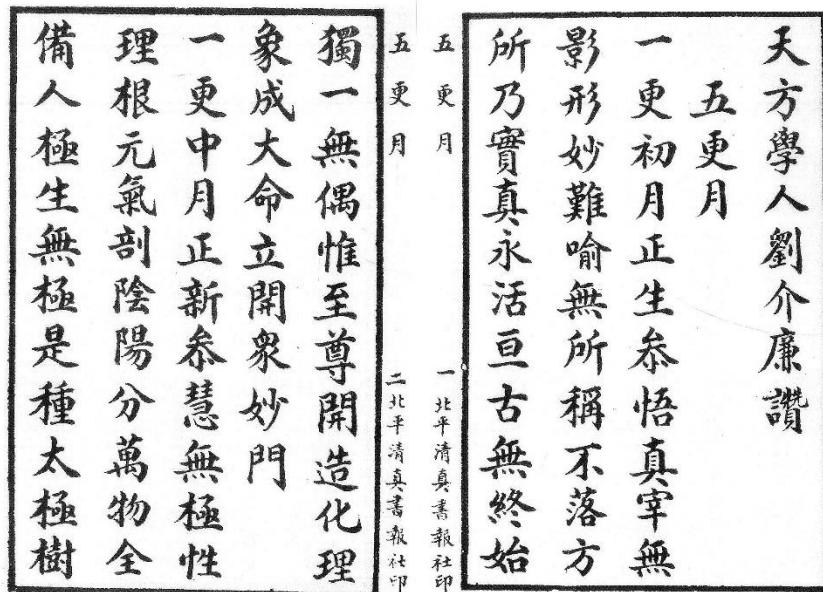 天方學人劉介廉讚
五更月
一更初月正生叅悟真宰無
影形妙難喻無所稱不落方
所乃實真永活亘古無終始
五更月
一 北平清真書報社印
五更月
二 北平清真書報社印
獨一無偶惟至尊開造化理
象成大命立開衆妙門
一更中月正新叅慧無極性
理根元氣剖陰陽分萬物全
備人極生無極是種太極樹